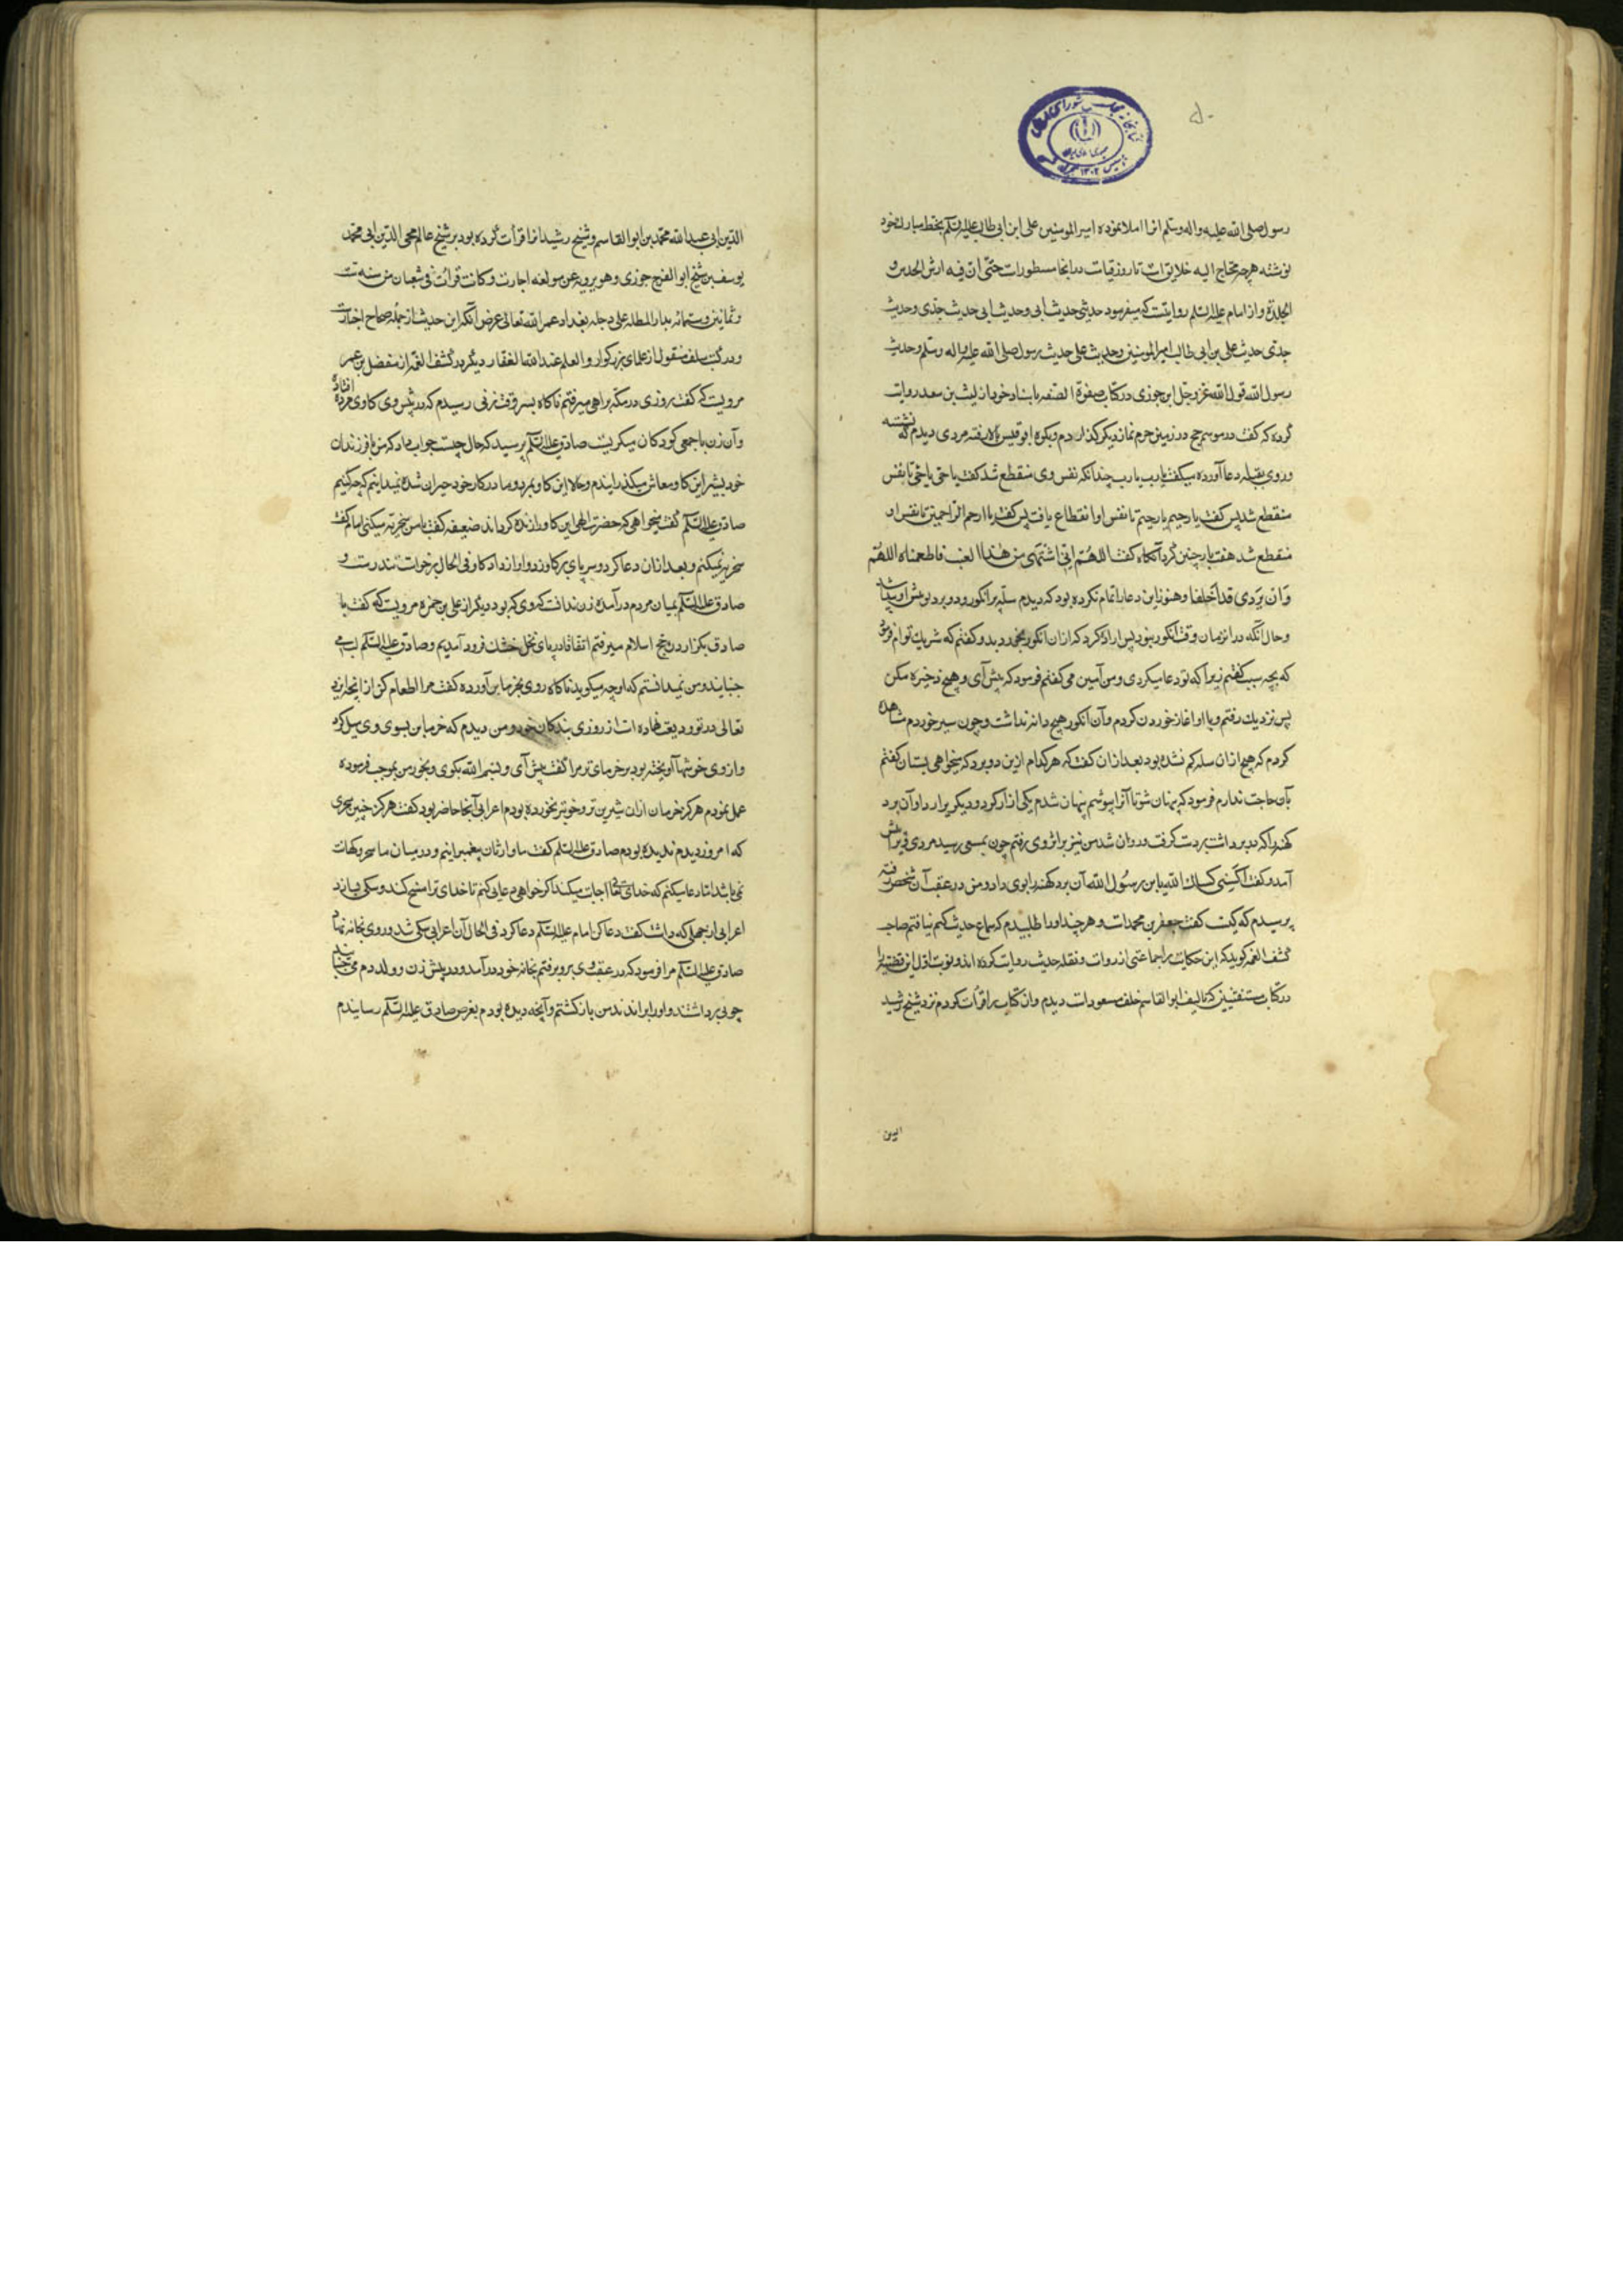 رسول صلی الله علیه واله وسلم انرا املا نموده امیر المومنین علی ابن ابی طالب علیه السلم بخط مبارک خود
نوشته هرچه محتاج الیه خلایق است تا روز قیامت در انجا مسطور است حتی ان فیه ارش الخدش و
الجلدة و از امام علیه السلم روایتست که میفرمود حدیثی حدیث ابی و حدیث ابی حدیث جدی و حدیث
جدی حدیث علی بن ابی طالب امیر المومنین و حدیث علی حدیث رسول صلی الله علیه واله وسلم و حدیث
رسول الله قول الله عز وجل ابن جوزی در کتاب صفوة الصفه باسناد خود از لیث بن سعد روایت
کرده که گفت در موسم حج در زمین حرم نماز دیگر گذاردم و بکوه ابو قبیس بالا رفته مردی دیدم که نشسته
و روی بقبله دعا آورده میگفت یا رب یا رب چندانکه نفس وی منقطع شد گفت یا حی یا حی تا نفس
منقطع شد پس گفت یا رحیم یا رحیم تا نفس او انقطاع یافت پس گفت یا ارحم الراحمین تا نفس او
منقطع شد هفت بار چنین کرد آنگاه گفت اللهم انی اشتهی من هذا العنب فاطعمناه اللهم
و ان بردی قد اخلقا و هنوز این دعا را تمام نکرده بود که دیدم سله پر انکور و دو برد نو پیش او پیدا شد
و حال آنکه در انزمان وقت انکور نبود پس اراده کرد که ازان انکور بخورد بدو گفتم که شریک توام فرمود
که بچه سبب گفتم زیرا که تو دعا میکردی و من آمین می گفتم فرمود که پیش آی و هیچ ذخیره مکن
پس نزدیک رفتم و با او اغاز خوردن کردم و آن انکور هیچ دانه نداشت و چون سیر خوردم مشاهده
کردم که هیچ ازان سله کم نشده بود بعد ازان گفت که هر کدام ازین دو برد که میخواهی بستان گفتم
بآن حاجت ندارم فرمود که پنهان شو تا آنرا بپوشم پنهان شدم یکی ازار کرد و دیگر یرا ردا و آن برد
کهنه را که در برداشت بردست گرفت و روان شد من نیز بر اثر وی رفتم چون بمسعی رسید مردی در برابرش
آمد و گفت اکسنی کساک الله یا ابن رسول الله آن برد کهنه را بوی داد و من در عقب آن شخص رفته
پرسیدم که کیست گفت جعفر بن محمد است و هر چند او را طلبیدم که سماع حدیث کنم نیافتم صاحب
کشف الغمه گوید که این حکایت را جماعتی از روات و نقله حدیث روایت کرده اند و نوبت اول این قضیه را
در کتاب مستغیثین که تالیف ابو القاسم خلف مسعود است دیدم و ان کتاب را قرات کردم نزد شیخ رشید
الدین
الدین ابی عبد الله محمد بن ابو القاسم و شیخ رشید انرا قرأت کرده بود بر شیخ عالم محی الدین ابی محمد
یوسف بن شیخ ابو الفرج جوزی و هو یرویه عن مولفه اجازت و کانت قرائت فی شعبان من سنه ست
و ثمانین و ستمائه بدار المطله علی دجله بغداد عمر الله تعالی غرض آنکه این حدیث از جمله صحاح اخبارست
و در کتب سلف منقول از علمای بزرگوار و العلم عند الله الغفار دیگر در کشف الغمه از مفضل بن عمر
مرویست که گفت روزی در مکه براهی میرفتم ناگاه بسر وقت زنی رسیدم که در پیش وی کاوی مرده افتاده
و آن زن با جمعی کودکان میگریست صادق علیه السلم پرسید که حال چیست جواب داد که من با فرزندان
خود بشیر این کاو معاش میگذرانیدم و حالا این کاو بمرد و ما در کار خود حیران شده نمیدانیم که چه کنیم
صادق علیه السلم گفت میخواهی که حضرت الهی این کاو را زنده گرداند ضعیفه گفت با من سخریه میکنی امام گفت
سخریه نمیکنم و بعد ازان دعا کرد و سر پای بر کاو زد و او را آواز داد کاو فی الحال برخواست تندرست و
صادق علیه السلم بمیان مردم در آمده زن ندانست که وی که بود دیگر از علی بن حمزه مرویست که گفت با
صادق بگزاردن حج اسلام میرفتم اتفاقا در پای نخل خشک فرود آمدیم و صادق علیه السلم لب می
جنبانید و من نمیدانستم که او چه میگوید ناگاه روی بخرما بن آورده گفت مرا اطعام کن از انچه ایزد
تعالی در تو ودیعت نهاده است از روزی بندگان خود و من دیدم که خرما بن بسوی وی میل کرد
و از وی خوشها آویخته بود پر خرمای تر مرا گفت پیش آی و بسم الله بگوی و بخور من بموجب فرموده
عمل نمودم هرگز خرما ازان شیرین تر و خوبتر نخورده بودم اعرابی آنجا حاضر بود گفت هرگز چنین سحری
که امروز دیدم ندیده بودم صادق علیه السلم گفت ما وارثان پیغمبرانیم و در میان ما سحر و کهانت
نمی باشد اما دعا میکنم که خدای تعالی اجابت میکند اگر خواهی دعا کنم تا خدای ترا مسخ کند و سگی سازد
اعرابی از جهلی که داشت گفت دعا کن امام علیه السلم دعا کرد فی الحال آن اعرابی سگی شد و روی بخانه نهاد
صادق علیه السلم مرا فرمود که در عقب وی برو برفتم بخانه خود در آمد و در پیش زن و ولد دم می جنبانید
چوبی برداشتند و او را براندند من باز گشتم و آنچه دیده بودم بعرض صادق علیه السلم رسانیدم